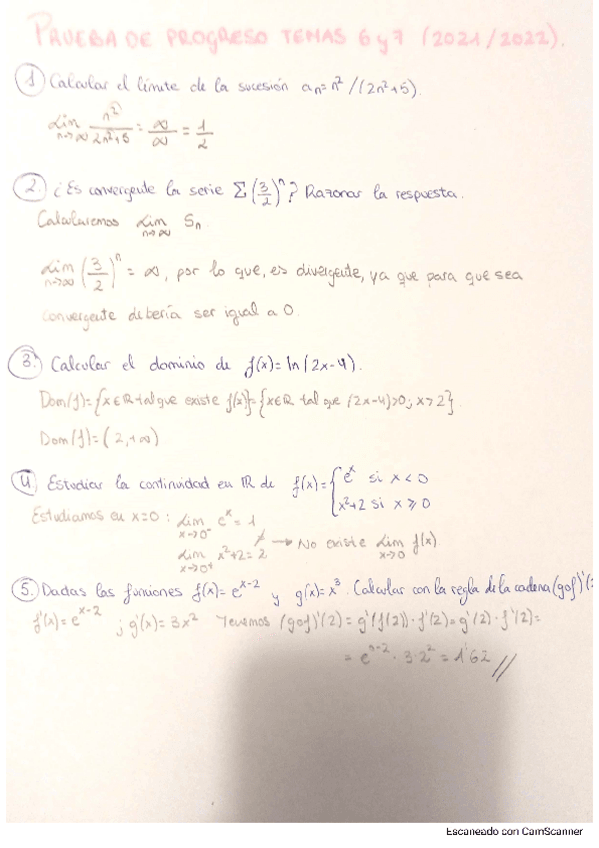 PRUEBA DE PROGRESO TEMAS 6 y 7 (2021/2022).
1 Calcular el límite de la sucesión an = n²/(2n²+5).
Lim n→∞ n²/2n²+5 = ∞/∞ = 1/2
2. ¿Es convergente la serie Σ(3/2)^n? Razonar la respuesta.
Calcularemos Lim n→∞ Sn
Lim n→∞ (3/2)^n = ∞, por lo que, es divergente, ya que para que sea
convergente debería ser igual a 0.
3. Calcular el dominio de f(x)=ln(2x-4).
Dom(f)={x∈ℝ tal que existe f(x)}={x∈ℝ tal que (2x-4)>0; x>2}.
Dom(f)=(2,+∞)
4 Estudiar la continuidad en ℝ de f(x)={e^x si x<0
x²+2 si x⩾0
Estudiamos en x=0: Lim x→0⁻ e^x = 1
≠ → No existe Lim x→0 f(x).
Lim x→0⁺ x²+2 = 2
5. Dadas las funciones f(x)=e^x-2 y g(x)=x³. Calcular con la regla de la cadena (gof)'(
f'(x)=e^x-2 ; g'(x)=3x² Tenemos (gof)'(2)=g'(f(2))·f'(2)=g'(2)·f'(2)=
= e^x-2 · 3·2² = 1'62 //
Escaneado con CamScanner